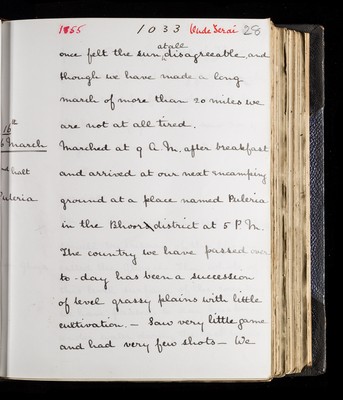 1855 1033 Oude Terai 28
at all
once felt the sun, disagreeable and
though we have made a long
march of more than 20 miles we
are not at all tired.
16th
6 March
Marched at 9 A.M. after breakfast
halt
and arrived at our next encamping
Puleria
ground at a place named Puleria
in the Bhoora district at 5 P.M.
The country we have passed over
to-day has been a succession
of level grassy plains with little
cultivation. — Saw very little game
and had very few shots — We